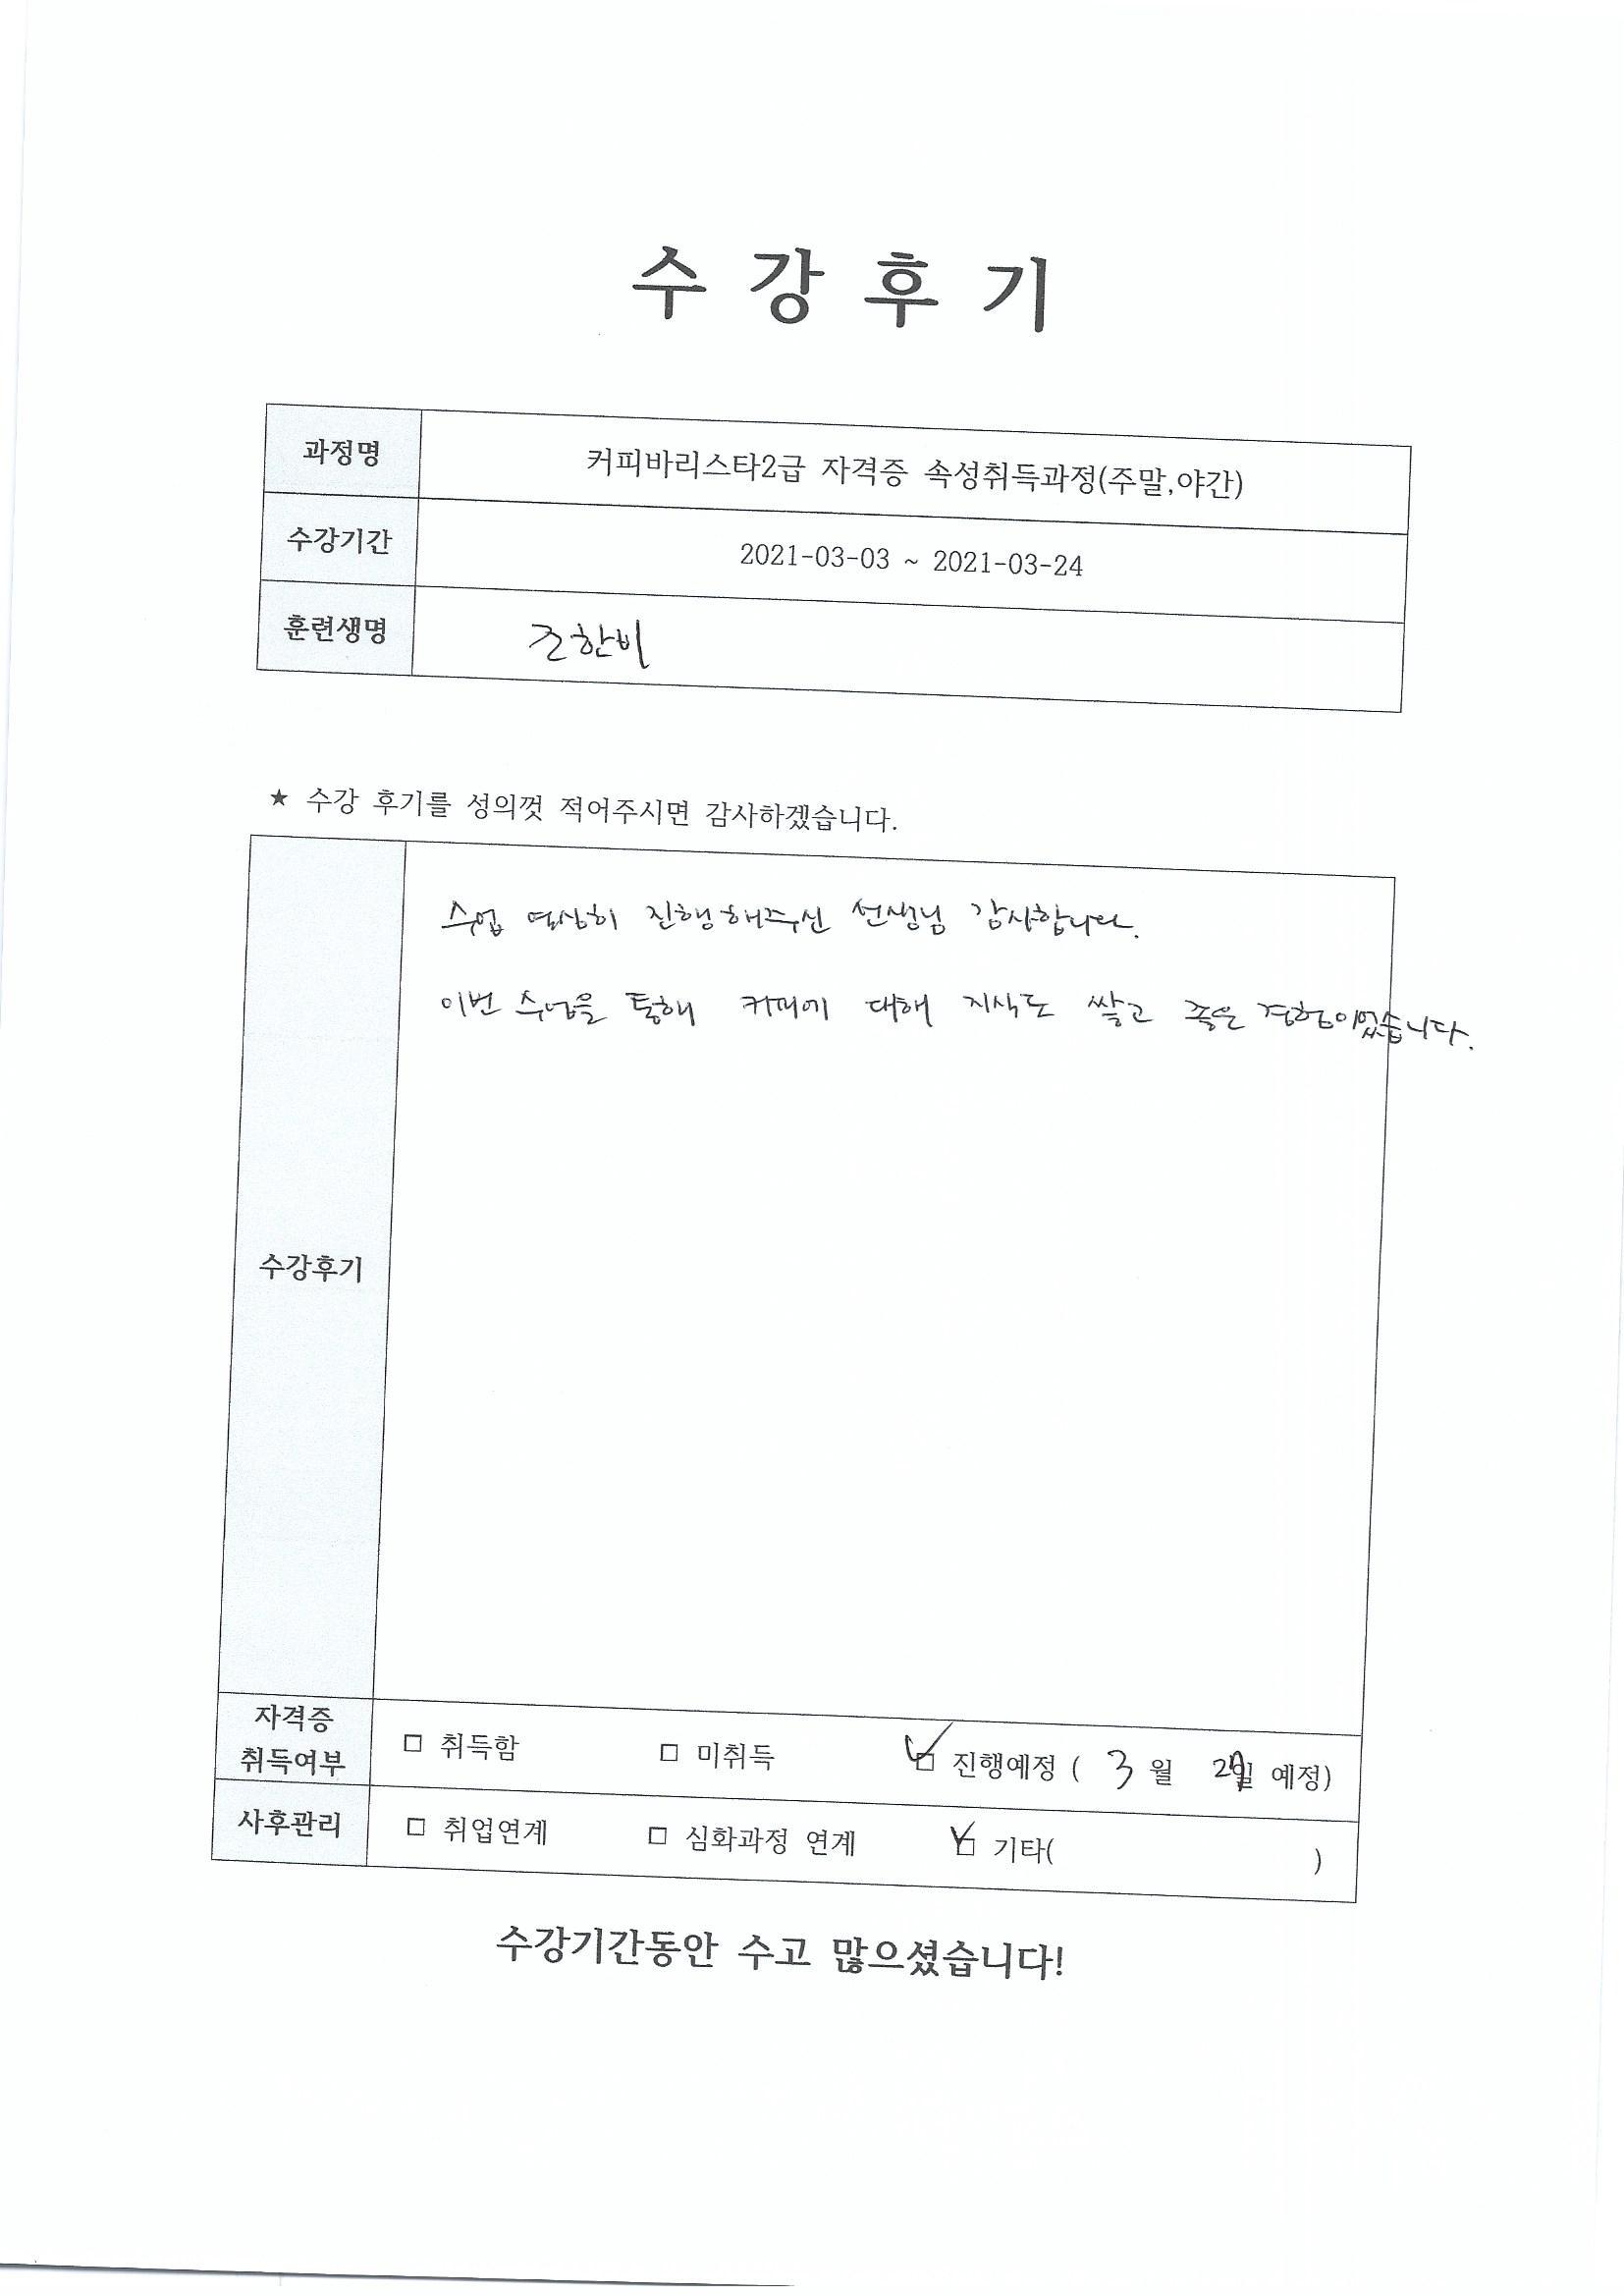 수강후기
과정명 커피바리스타2급 자격증 속성취득과정(주말,야간)
수강기간 2021-03-03 ~ 2021-03-24
훈련생명 조한비
★ 수강 후기를 성의껏 적어주시면 감사하겠습니다.
수업 열심히 진행해주신 선생님 감사합니다.
이번 수업을 통해 커피에 대해 지식도 쌓고 좋은 경험이었습니다.
수강후기
자격증
취득여부
□ 취득함 □ 미취득 ☑ 진행예정 ( 3 월 일 예정)
사후관리 □ 취업연계 □ 심화과정 연계 ☑ 기타( )
수강기간동안 수고 많으셨습니다!